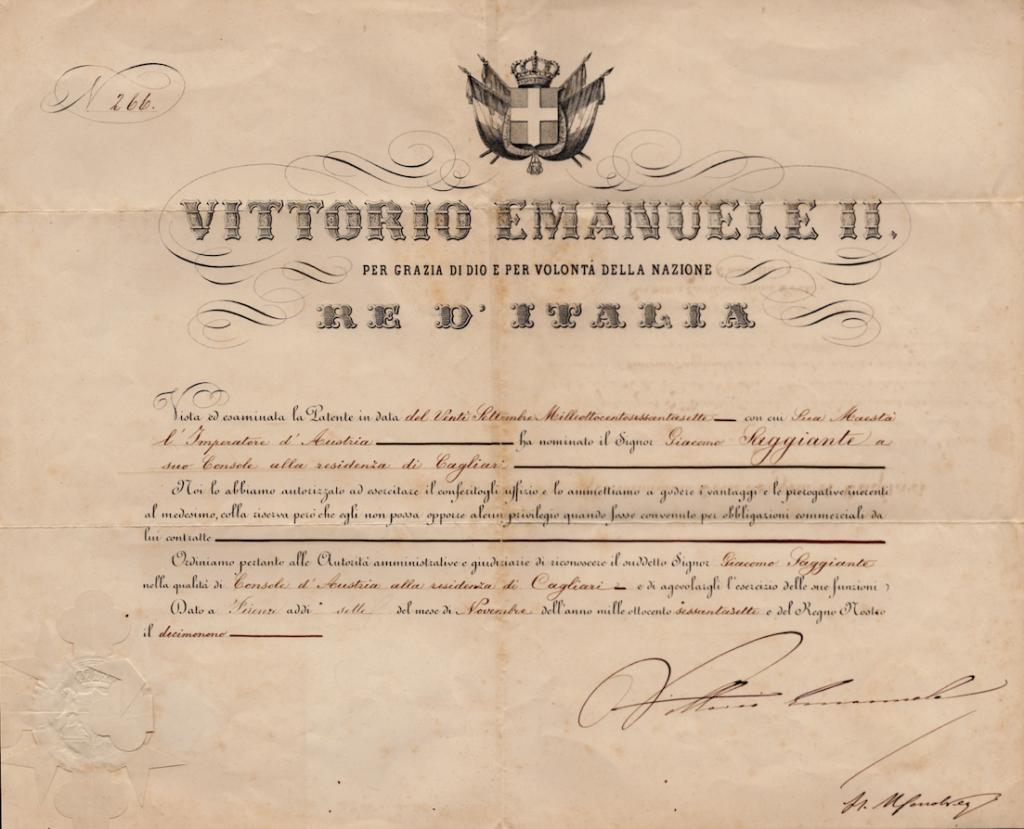 N 266.
VITTORIO EMANUELE II.
PER GRAZIA DI DIO E PER VOLONTÀ DELLA NAZIONE
RE D'ITALIA
Vista ed esaminata la Patente in data del Venti Settembre Milleottocentosessantasette con cui Sua Maestà
l'Imperatore d'Austria ha nominato il Signor Giacomo Saggiante a
suo Console alla residenza di Cagliari
Noi lo abbiamo autorizzato ad esercitare il conferitogli uffizio e lo ammettiamo a godere i vantaggi e le prerogative inerenti
al medesimo, colla riserva però che egli non possa opporre alcun privilegio quando fosse convenuto per obbligazioni commerciali da
lui contratte
Ordiniamo pertanto alle Autorità amministrative e giudiziarie di riconoscere il suddetto Signor Giacomo Saggiante
nella qualità di Console d'Austria alla residenza di Cagliari e di agevolargli l'esercizio delle sue funzioni
Dato a Firenze addì sette del mese di Novembre dell'anno mille ottocento sessantasette e del Regno Nostro
il decimonono
Vittorio Emanuele